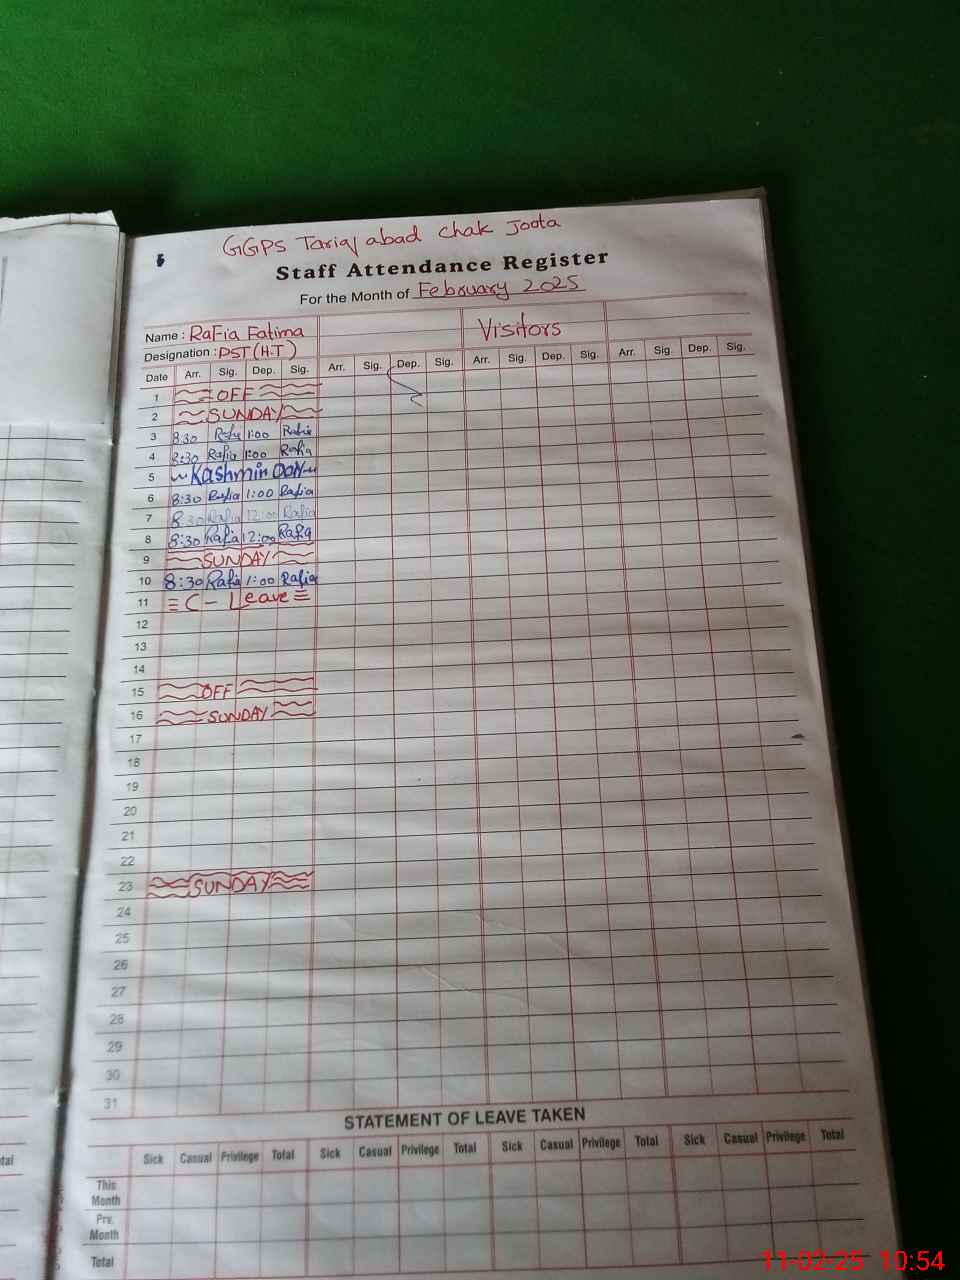 GGPS Tariq abad chak Joota
Staff Attendance Register
For the Month of February 2025
Name : Rafia Fatima Visitors
Designation : PST (H.T)
Date Arr. Sig. Dep. Sig. Arr. Sig. Dep. Sig. Arr. Sig. Dep. Sig. Arr. Sig. Dep. Sig.
1 OFF
2 SUNDAY
3 8:30 Rafia 1:00 Rafia
4 8:30 Rafia 1:00 Rafia
5 Kashmir DAY
6 8:30 Rafia 1:00 Rafia
7 8:30 Rafia 12:00 Rafia
8 8:30 Rafia 12:00 Rafia
9 SUNDAY
10 8:30 Rafia 1:00 Rafia
11 C - Leave
12
13
14
15 OFF
16 SUNDAY
17
18
19
20
21
22
23 SUNDAY
24
25
26
27
28
29
30
31
STATEMENT OF LEAVE TAKEN
Sick Casual Privilege Total Sick Casual Privilege Total Sick Casual Privilege Total Sick Casual Privilege Total
This Month
Prv. Month
Total
11-02-25 10:54